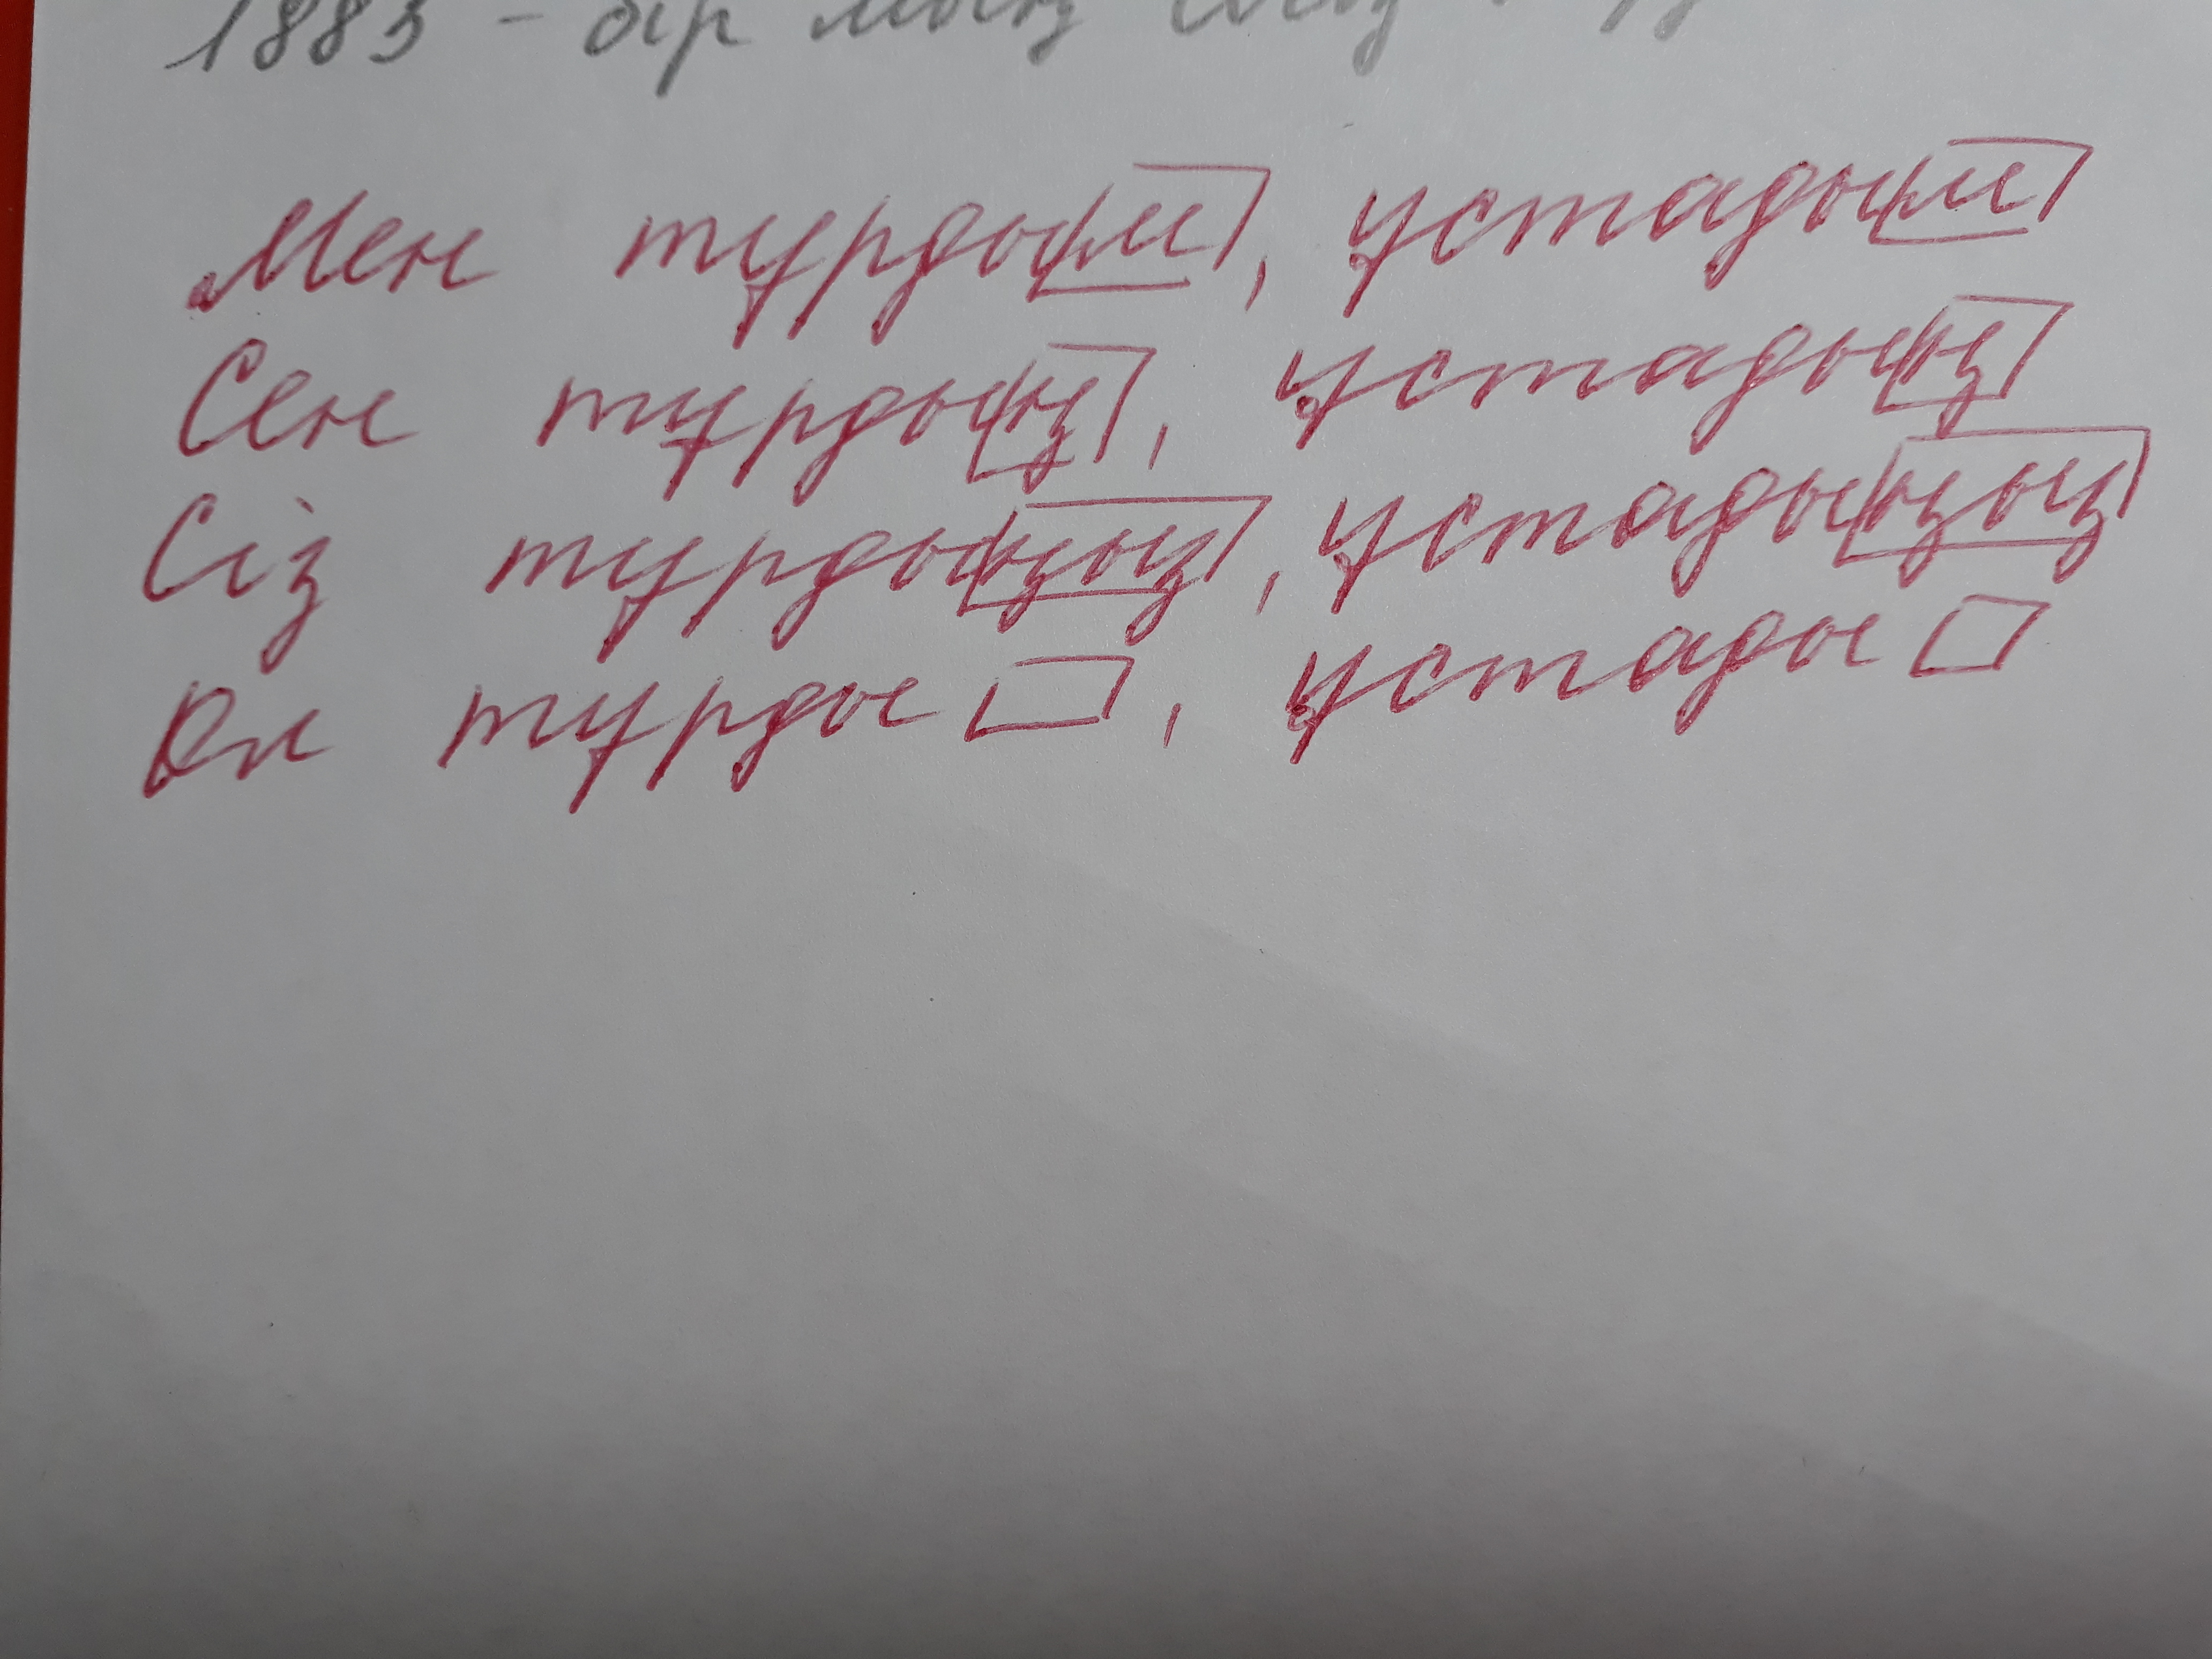 1883 - бір мың сегіз
Мен тұрдым, ұстадым
Сен тұрдың, ұстадың
Сіз тұрдыңыз, ұстадыңыз
Ол тұрды, ұстады